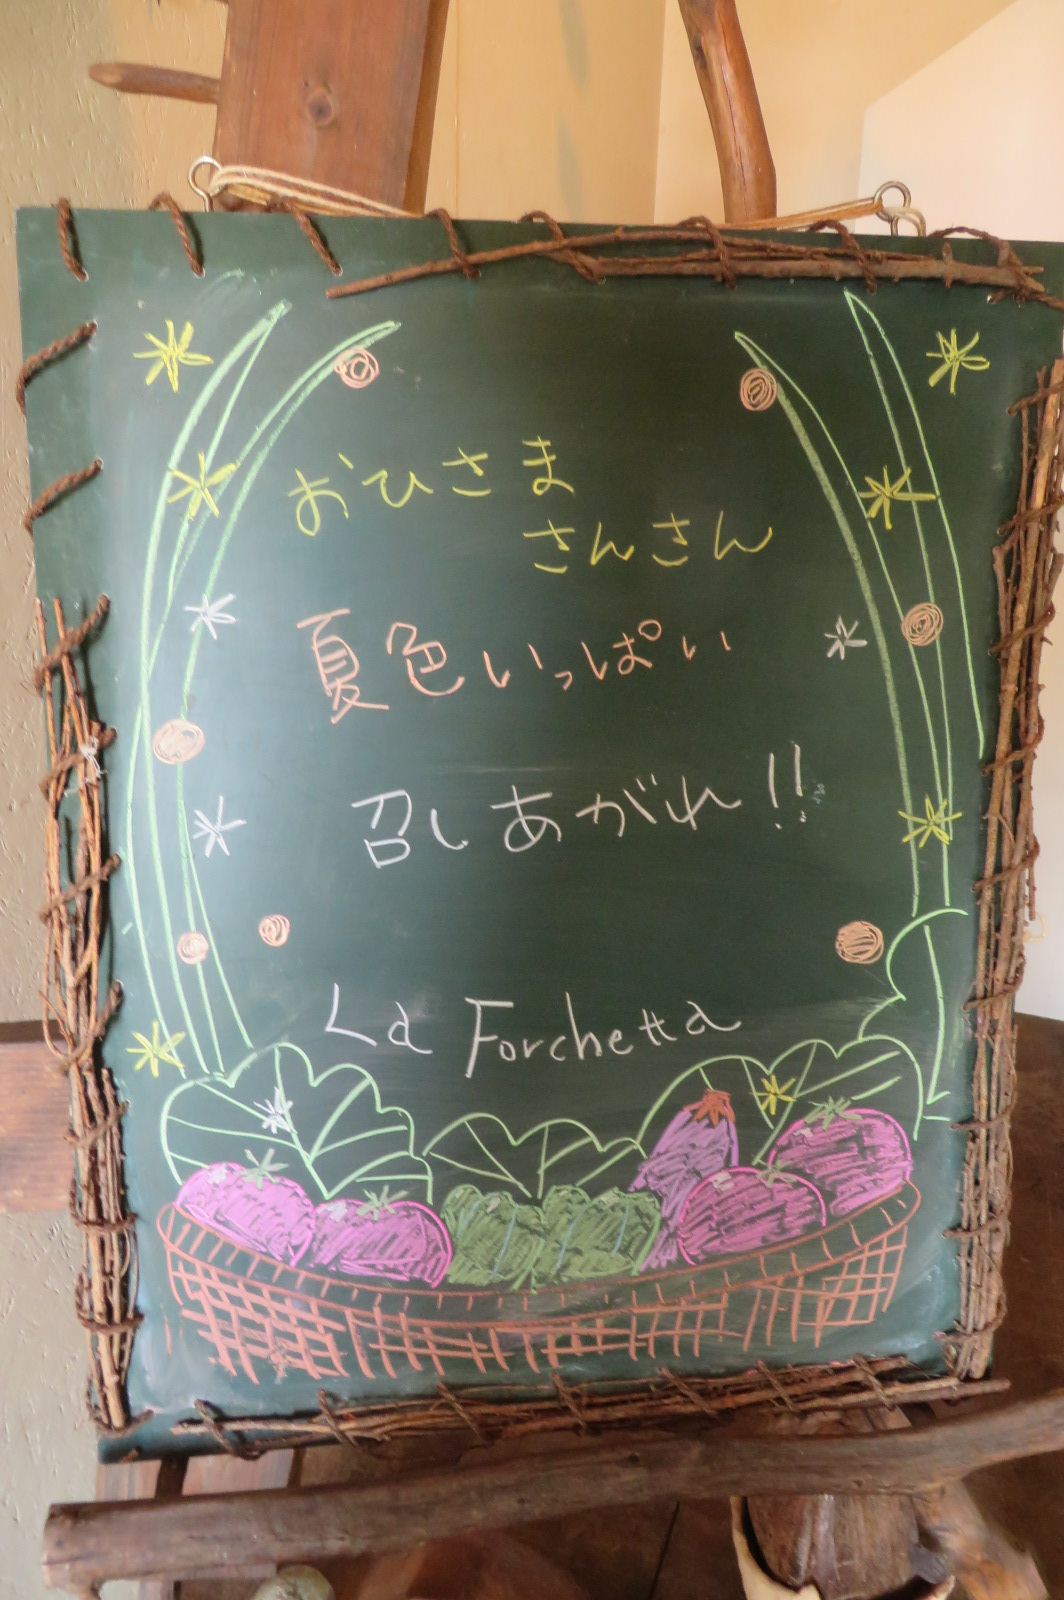 おひさま
さんさん
夏色いっぱい
召しあがれ!!
La Forchetta